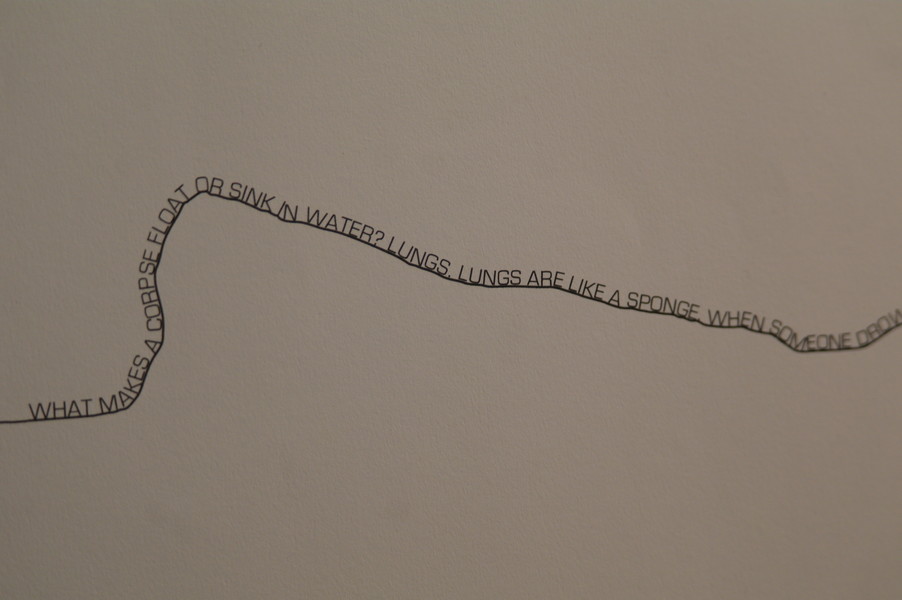 WHAT MAKES A CORPSE FLOAT OR SINK IN WATER? LUNGS. LUNGS ARE LIKE A SPONGE. WHEN SOMEONE DROW